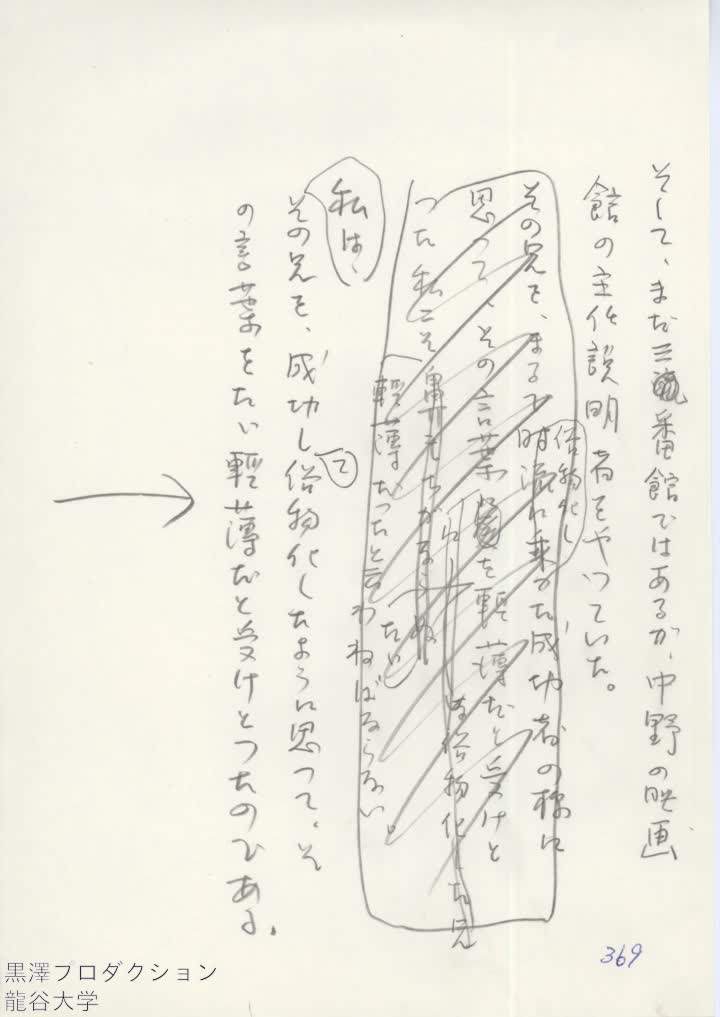 そして、まだ三番館ではあるが、中野の映画
館の主任説明者をやっていた。
俗物化し
その兄を、まるで時流に乗った成功者の様に
思って、その言葉を軽薄だと受けと
った私こそ
俗物化した兄
たい
軽薄だったと言わねばならない。
私は、
その兄を、成功し俗物化したように思って、そ
て
の言葉をたゞ軽薄だと受けとったのである。
369
黒澤プロダクション
龍谷大学